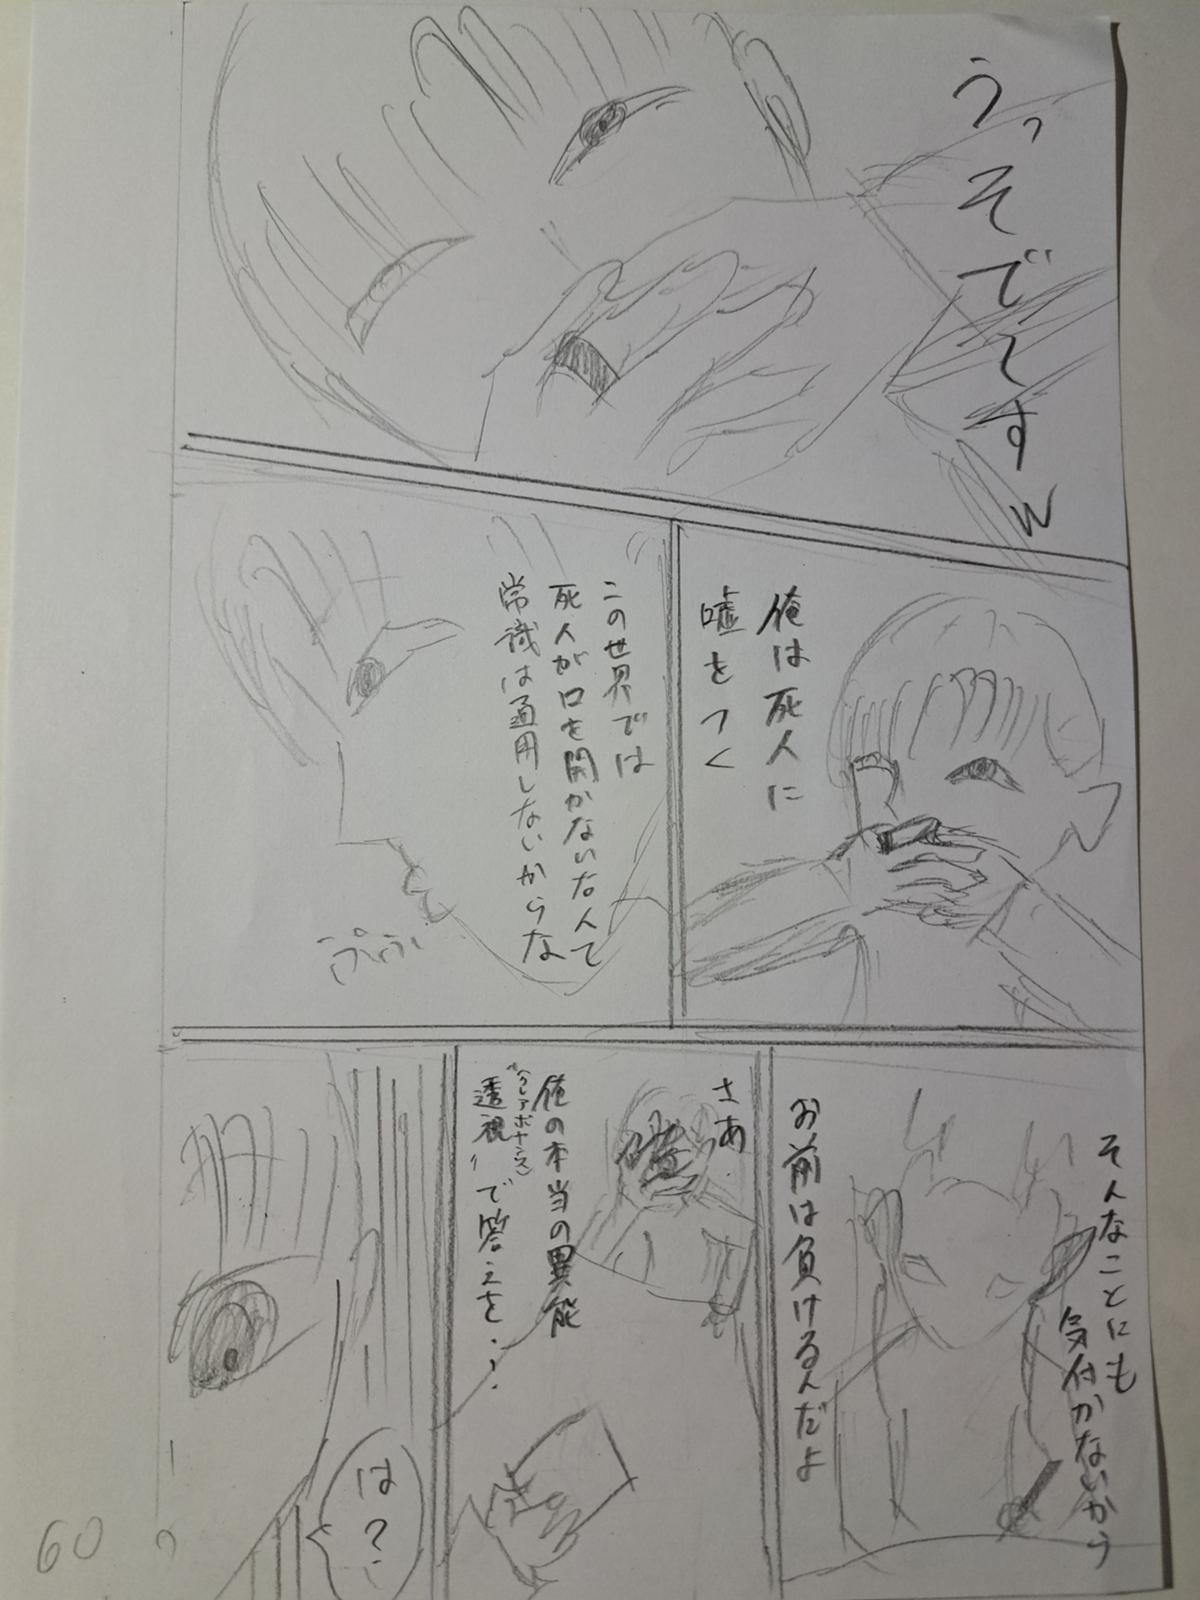 うっそでーすw
俺は死人に
嘘をつく
この世界では
死人が口を開かないなんて
常識は通用しないからな
そんなことにも
気付かないから
お前は負けるんだよ
さあ
俺の本当の異能
透視
(クレアボヤンス)
で答えを‥?
は?
60